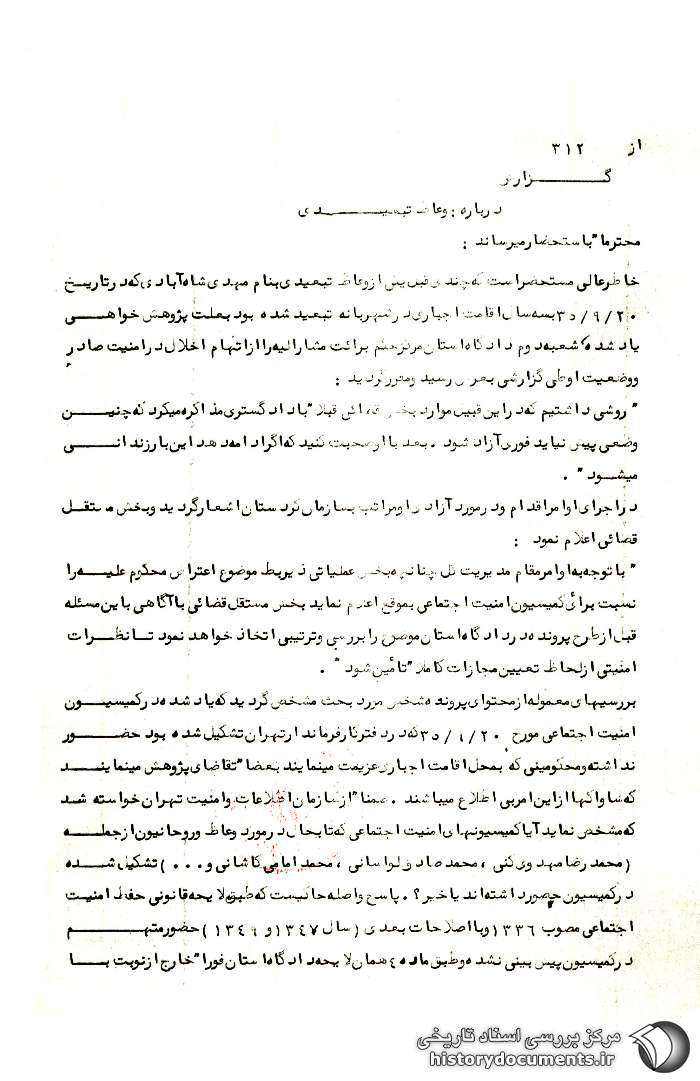 از ۳۱۲
گزارش
درباره : وعاظ تبعیدی
محترما" باستحضار میرساند :
خاطرعالی مستحضراست که چندی قبل یکی ازوعاظ تبعیدی بنام مهدی شاه آبادی که درتاریخ
۳۵/۹/۲۰ بسه سال اقامت اجباری در شهر بانه تبعید شده بود بعلت پژوهش خواهی
یاد شده شعبه دوم دادگاه استان مرکز حکم برائت مشارالیه را ازاتهام اخلال درامنیت صادر
ووضعیت اوطی گزارشی بعرض رسید ومقررگردید :
" روشی داشتیم که دراین قبیل موارد بخش قضائی قبلا" با دادگستری مذاکره میکرد که چنین
وضعی پیش نیاید فوری آزاد شود . بعد با اوصحبت کنید که اگر ادامه دهد این بار زندانی
میشود " .
دراجرای اوامر اقدام ودرمورد آزادی اومراتب بسازمان کردستان اشعارگردید وبخش مستقل
قضائی اعلام نمود :
" با توجه به اوامرمقام مدیریت کل چنانچه بخش عملیاتی ذیربط موضوع اعتراض محکوم علیه را
نسبت برأی کمیسیون امنیت اجتماعی بموقع اعلام نماید بخش مستقل قضائی با آگاهی باین مسئله
قبل ازطرح پرونده در دادگاه استان موضوع را بررسی وترتیبی اتخاذ خواهد نمود تا نظرات
امنیتی ازلحاظ تعیین مجازات کاملا" تأمین شود " .
بررسیهای معموله ازمحتوای پرونده شخص مورد بحث مشخص گردید که یاد شده درکمیسیون
امنیت اجتماعی مورخ ۳۵/۹/۲۰ که دردفترکارفرماندارتهران تشکیل شده بود حضور
نداشته ومحکومینی که بمحل اقامت اجباری عزیمت مینمایند بعضا" تقاضای پژوهش مینمایند
که ساواکها ازاین امر بی اطلاع میباشند . ضمنا" ازسازمان اطلاعات وامنیت تهران خواسته شد
که مشخص نماید آیا کمیسیونهای امنیت اجتماعی که تابحال درمورد وعاظ وروحانیون ازجمله
( محمد رضا مهدوی کنی ، محمد صادق لواسانی ، محمد امامی کاشانی و . . . ) تشکیل شده
درکمیسیون حضورداشته اند یا خیر ؟ . پاسخ واصله حاکیست که طبق لایحه قانونی حفظ امنیت
اجتماعی مصوب ۱۳۳۶ وبا اصلاحات بعدی ( سال ۱۳۴۷ و ۱۳۴۹ ) حضورمتهم
درکمیسیون پیش بینی نشده وطبق ماده ۴ همان لایحه دادگاه استان فورا" خارج ازنوبت با
مرکز بررسی اسناد تاریخی
historydocuments.ir